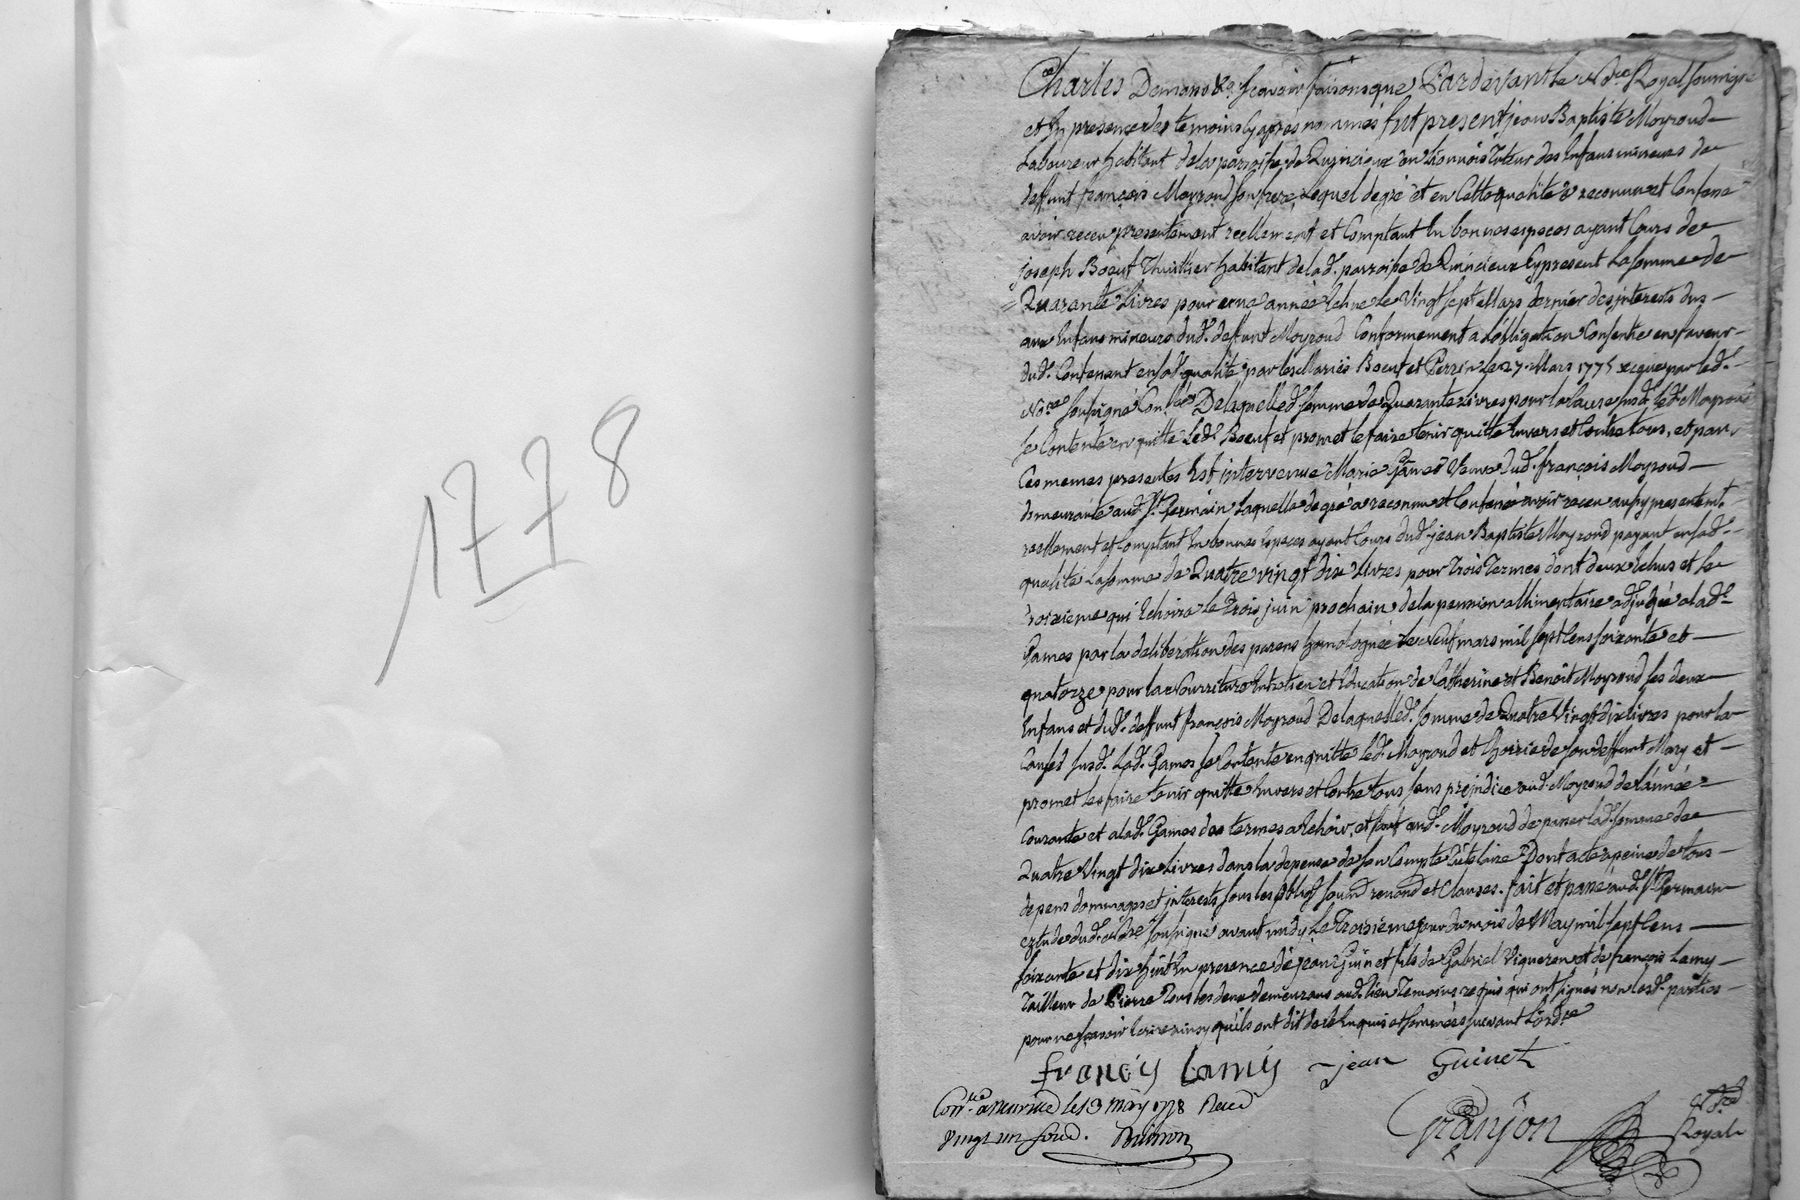 1778
Charles Demons &c. Scavoir faisons que Pardevant le No.re Royal soussigné
et En presence des temoins cy apres nommés fut present jean Baptiste Moyroud
Laboureur habitant de la parroisse de Quincieux en Lionnois Tuteur des Enfans mineurs de
deffunt françois Moyroud son frere, Lequel de gré et en Cette qualité a reconnu et Confessé
avoir receu presentement reellement et Comptant En bonnes especes ayant Cours de
joseph Boeuf Thuillier habitant de lad. parroisse de Quincieux Cy present La somme de
Quarante Livres pour une année Echue Le Vingt sept Mars dernier des interests dus
aux Enfans mineurs dud. deffunt Moyroud Conformement a L'obligation Consentie en faveur
dud. Contenant en sad. qualité par les Mariés Boeuf et Perrin Le 27. Mars 1775 recue par led.
No.re soussigné De laquelle d. somme de Quarante Livres pour la Cause susd. led. Moyroud
se Contente en quitte Led. Boeuf et promet le faire tenir quitte Envers et Contre tous, et par
Ces memes presentes Est intervenue Marie Games Veuve dud. françois Moyroud
demeurante aud. St. Germain Laquelle de gré a reconnu et Confessé avoir receu aussy presentemt.
reellement et Comptant En bonnes Especes ayant Cours dud. jean Baptiste Moyroud payant en sad.
qualité La somme de Quatre vingt dix Livres pour Trois Termes dont deux Echus et le
Troisieme qui Echoira Le Trois juin prochain de la pension allimentaire adjugée a lad.
Games par la deliberation des parens homologuée Le Neuf mars mil sept Cens soixante et
quatorze pour la Nourriture Entretien et Education de Catherine et Benoit Moyroud ses deux
Enfans et dud. deffunt françois Moyroud De laquelle d. somme de Quatre Vingt dix livres pour la
Cause susd. Lad. Games se Contente en quitte led. Moyroud et L'hoirie de son deffunt Mary et
promet les faire tenir quitte Envers et Contre tous sans prejudice aud. Moyroud de l'année
Courante et a lad. Games des termes a Echoir, et sauf aud. Moyroud de passer lad. somme de
Quatre Vingt dix Livres dans la depense de son Compte Tutelaire Dont acte a peine de tous
depens dommages et interests sous les oblig. soum. renond et Clauses. fait et passé aud. St. Germain
etude dud. No.re soussigné avant midy Le Troisieme jour du mois de May mil sept Cens
soixante et dix huit En presence de jean Guinet fils de Gabriel Vigneron et de françois Lamy
Tailleur de Pierre Tous les deux demeurans aud. lieu Temoins requis qui ont signés non lesd. parties
pour ne scavoir Ecrire ainsy qu'ils ont dit de ce Enquis et sommées suivant L'ord.ce
francoy Lamy jean Guinet
Con.lé a neuville le 13 may 1778 Recu
vingt un sous.
Granjon No.re
Royal